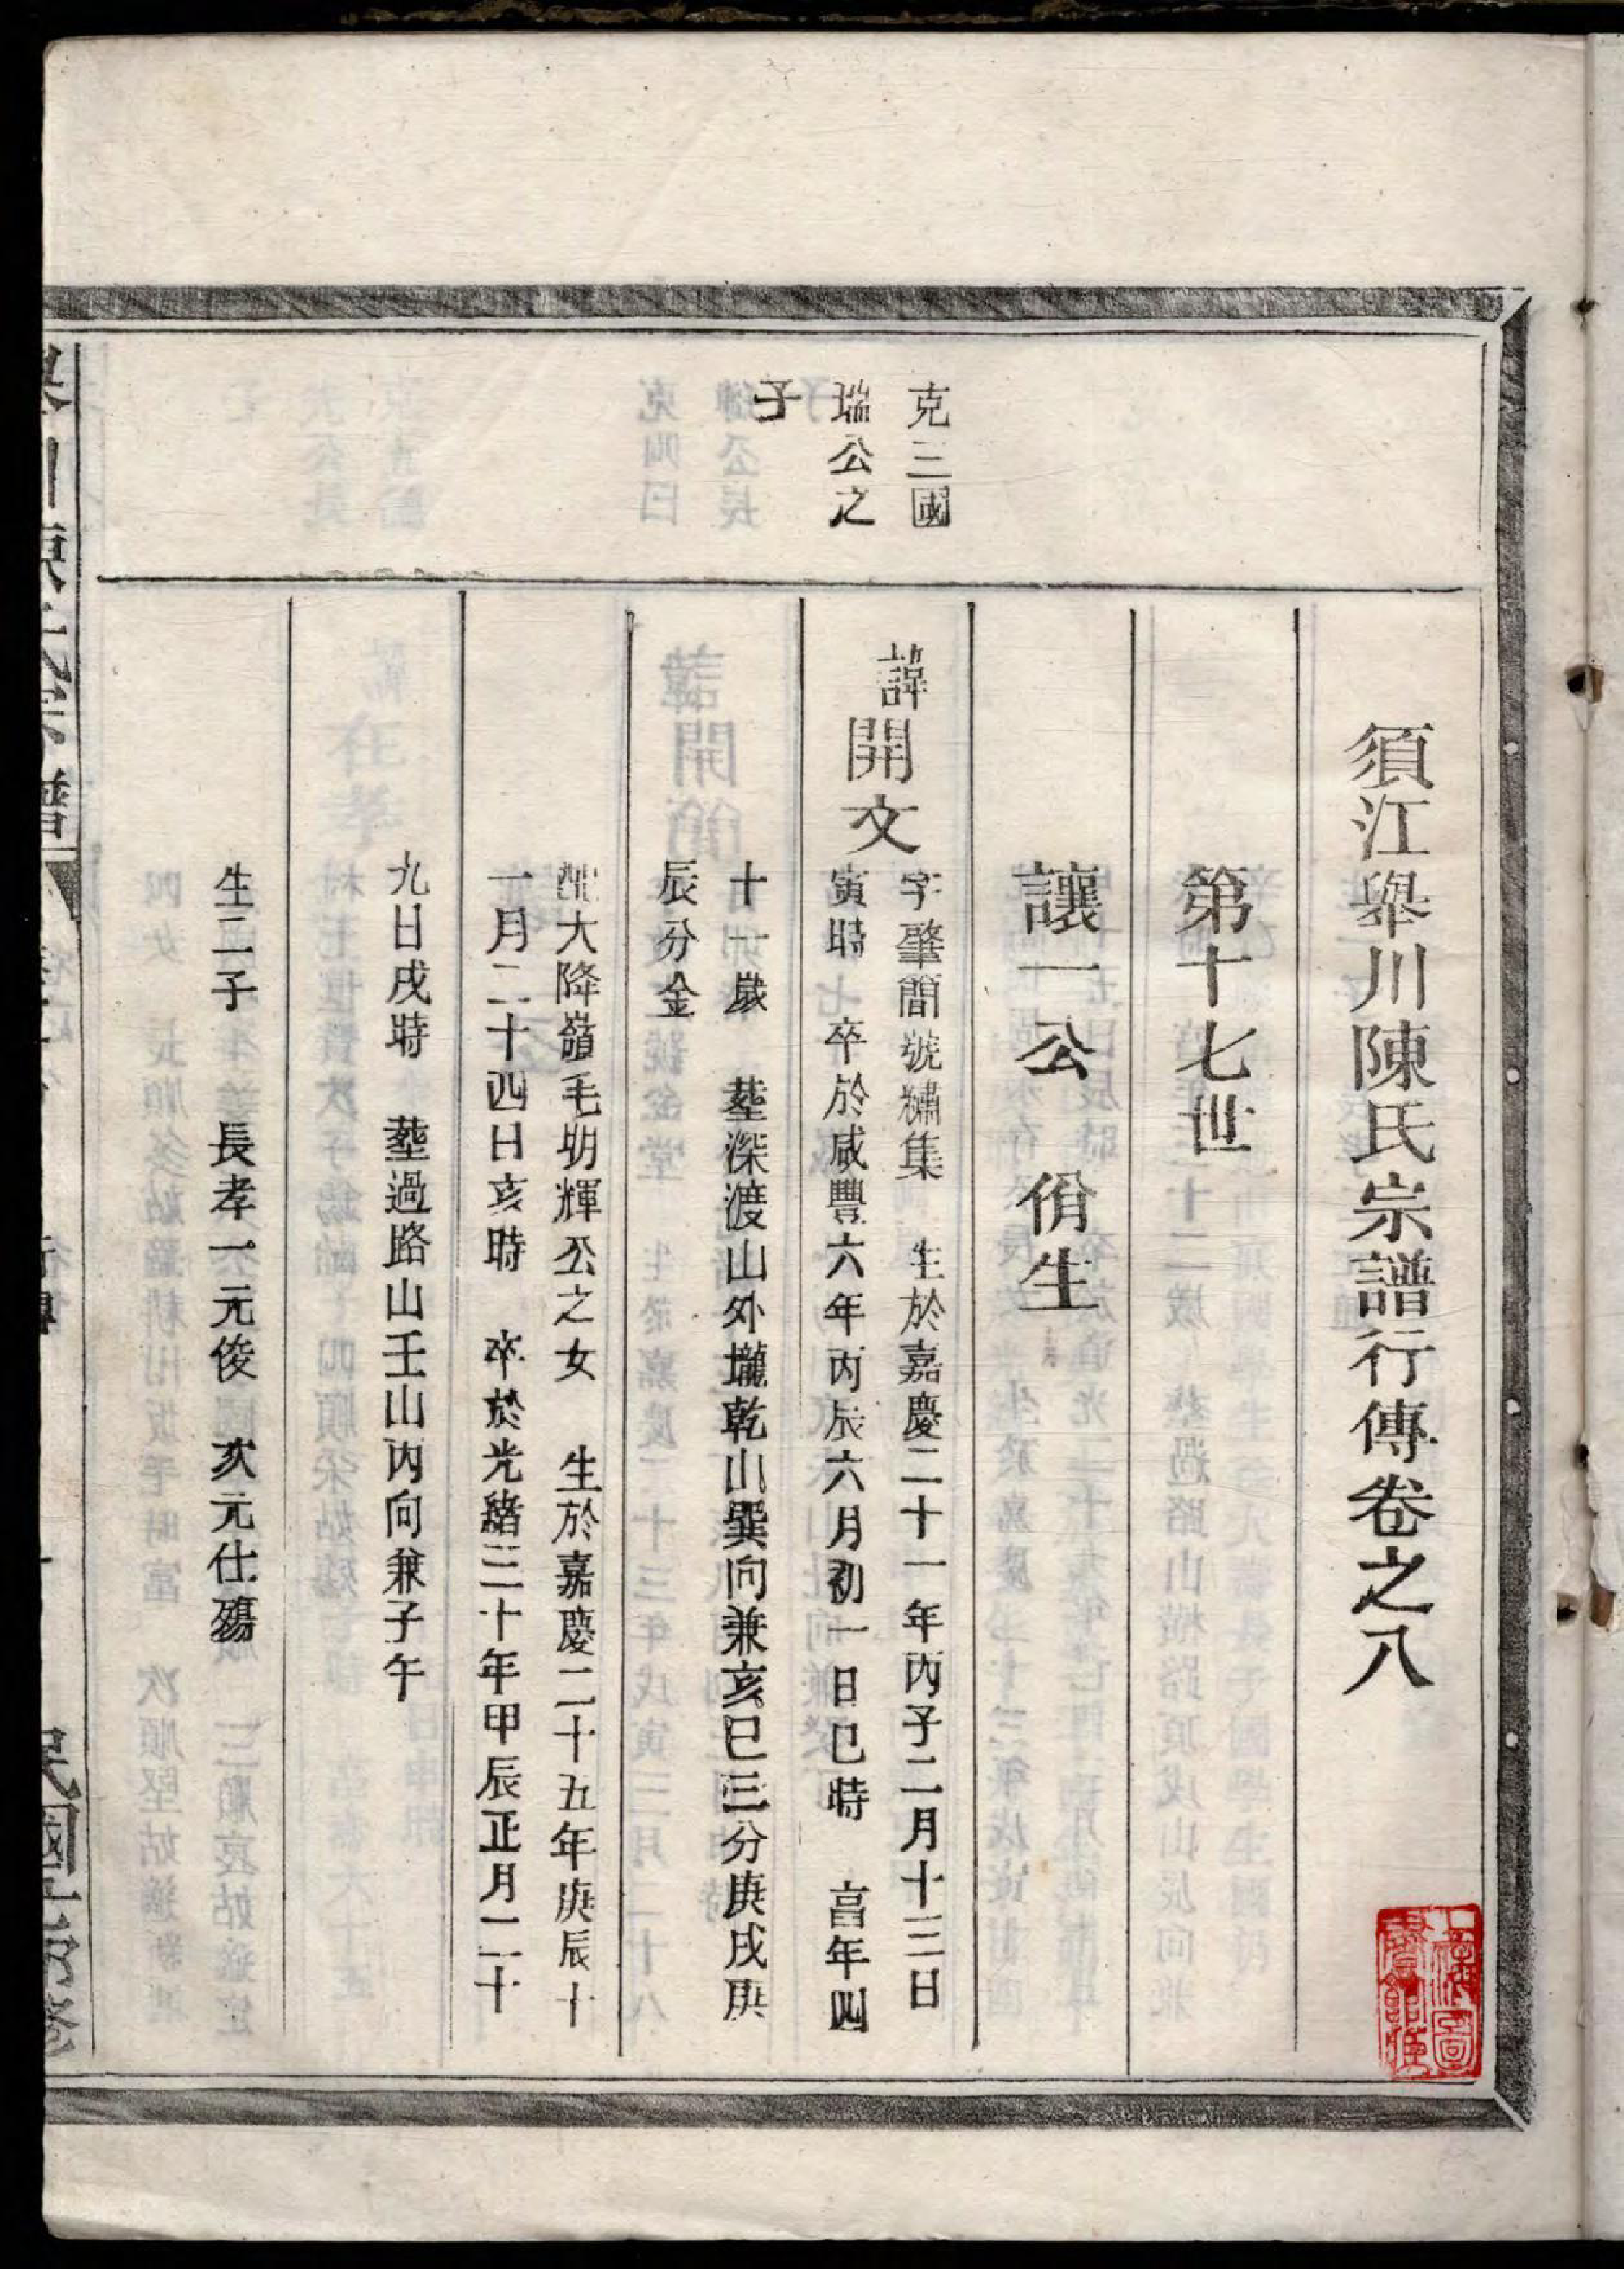 須江㠖川陳氏宗譜行傳卷之八
第十七世
讓一公 佾生
克三國
瑞公之
子
諱開文
字肇簡號繡集 生於嘉慶二十一年丙子二月十三日
寅時 卒於咸豐六年丙辰六月初一日巳時 亯年四
十一歲 塟深渡山外壠乾山巽向兼亥巳三分庚戌庚
辰分金
配大降嶺毛明輝公之女 生於嘉慶二十五年庚辰十
一月二十四日亥時 卒於光緒三十年甲辰正月二十
九日戌時 塟過路山壬山丙向兼子午
生二子 長孝一元俊 次元仕殤
川陳氏宗譜
民國